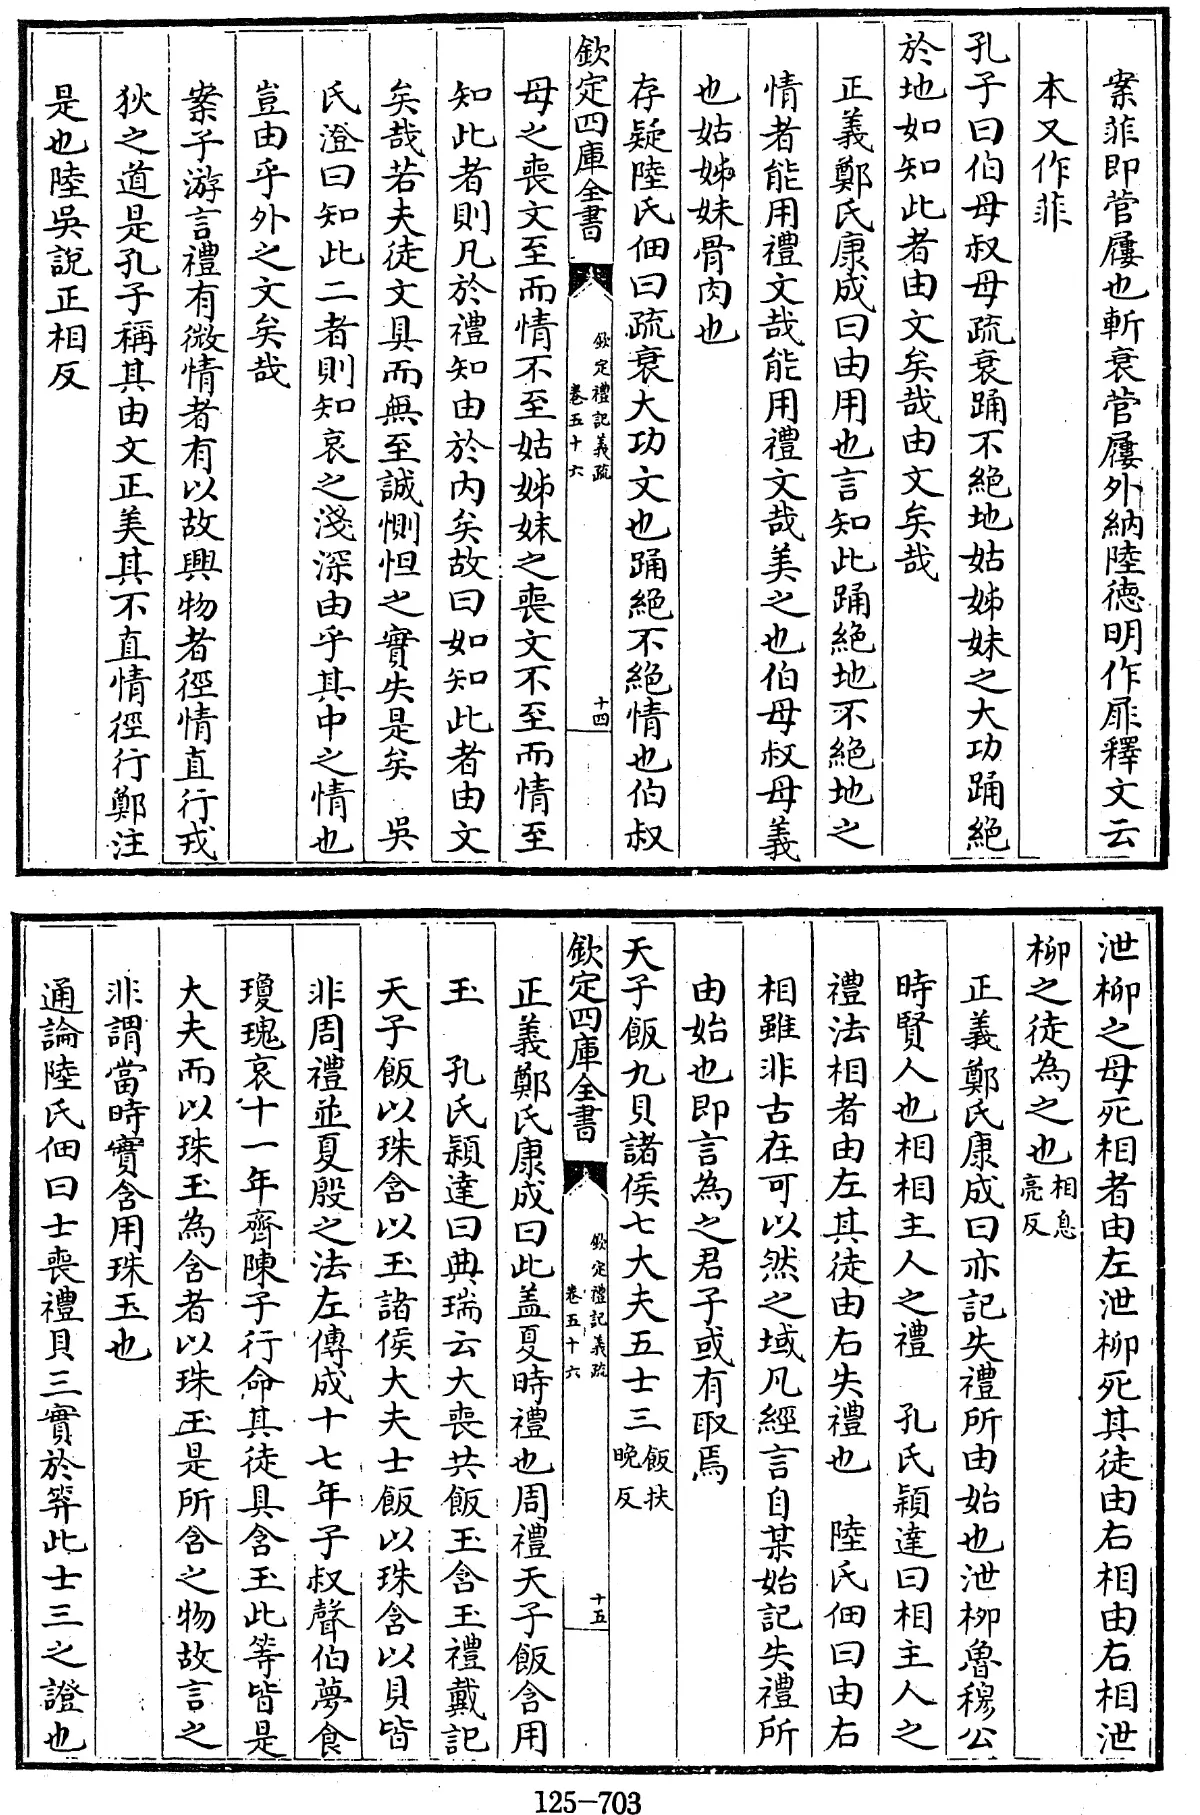 案菲即菅屨也斬衰菅屨外納陸德明作屝釋文云
本又作菲
孔子曰伯母叔母疏衰踊不絕地姑姊妹之大功踊絕
於地如知此者由文矣哉由文矣哉
正義鄭氏康成曰由用也言知此踊絕地不絕地之
情者能用禮文哉能用禮文哉美之也伯母叔母義
也姑姊妹骨肉也
存疑陸氏佃曰疏衰大功文也踊絕不絕情也伯叔
欽定四庫全書
欽定禮記義疏
卷五十六
十四
母之喪文至而情不至姑姊妹之喪文不至而情至
知此者則凡於禮知由於內矣故曰如知此者由文
矣哉若夫徒文具而無至誠惻怛之實失是矣 吳
氏澄曰知此二者則知哀之淺深由乎其中之情也
豈由乎外之文矣哉
案子游言禮有微情者有以故興物者徑情直行戎
狄之道是孔子稱其由文正美其不直情徑行鄭注
是也陸吳說正相反
泄柳之母死相者由左泄柳死其徒由右相由右相泄
柳之徒為之也相息亮反
正義鄭氏康成曰亦記失禮所由始也泄柳魯穆公
時賢人也相相主人之禮 孔氏穎達曰相主人之
禮法相者由左其徒由右失禮也 陸氏佃曰由右
相雖非古在可以然之域凡經言自某始記失禮所
由始也即言為之君子或有取焉
天子飯九貝諸侯七大夫五士三飯扶晚反
欽定四庫全書
欽定禮記義疏
卷五十六
十五
正義鄭氏康成曰此蓋夏時禮也周禮天子飯含用
玉 孔氏穎達曰典瑞云大喪共飯玉含玉禮戴記
天子飯以珠含以玉諸侯大夫士飯以珠含以貝皆
非周禮並夏殷之法左傳成十七年子叔聲伯夢食
瓊瑰哀十一年齊陳子行命其徒具含玉此等皆是
大夫而以珠玉為含者以珠玉是所含之物故言之
非謂當時實含用珠玉也
通論陸氏佃曰士喪禮貝三實於笲此士三之證也
125-703